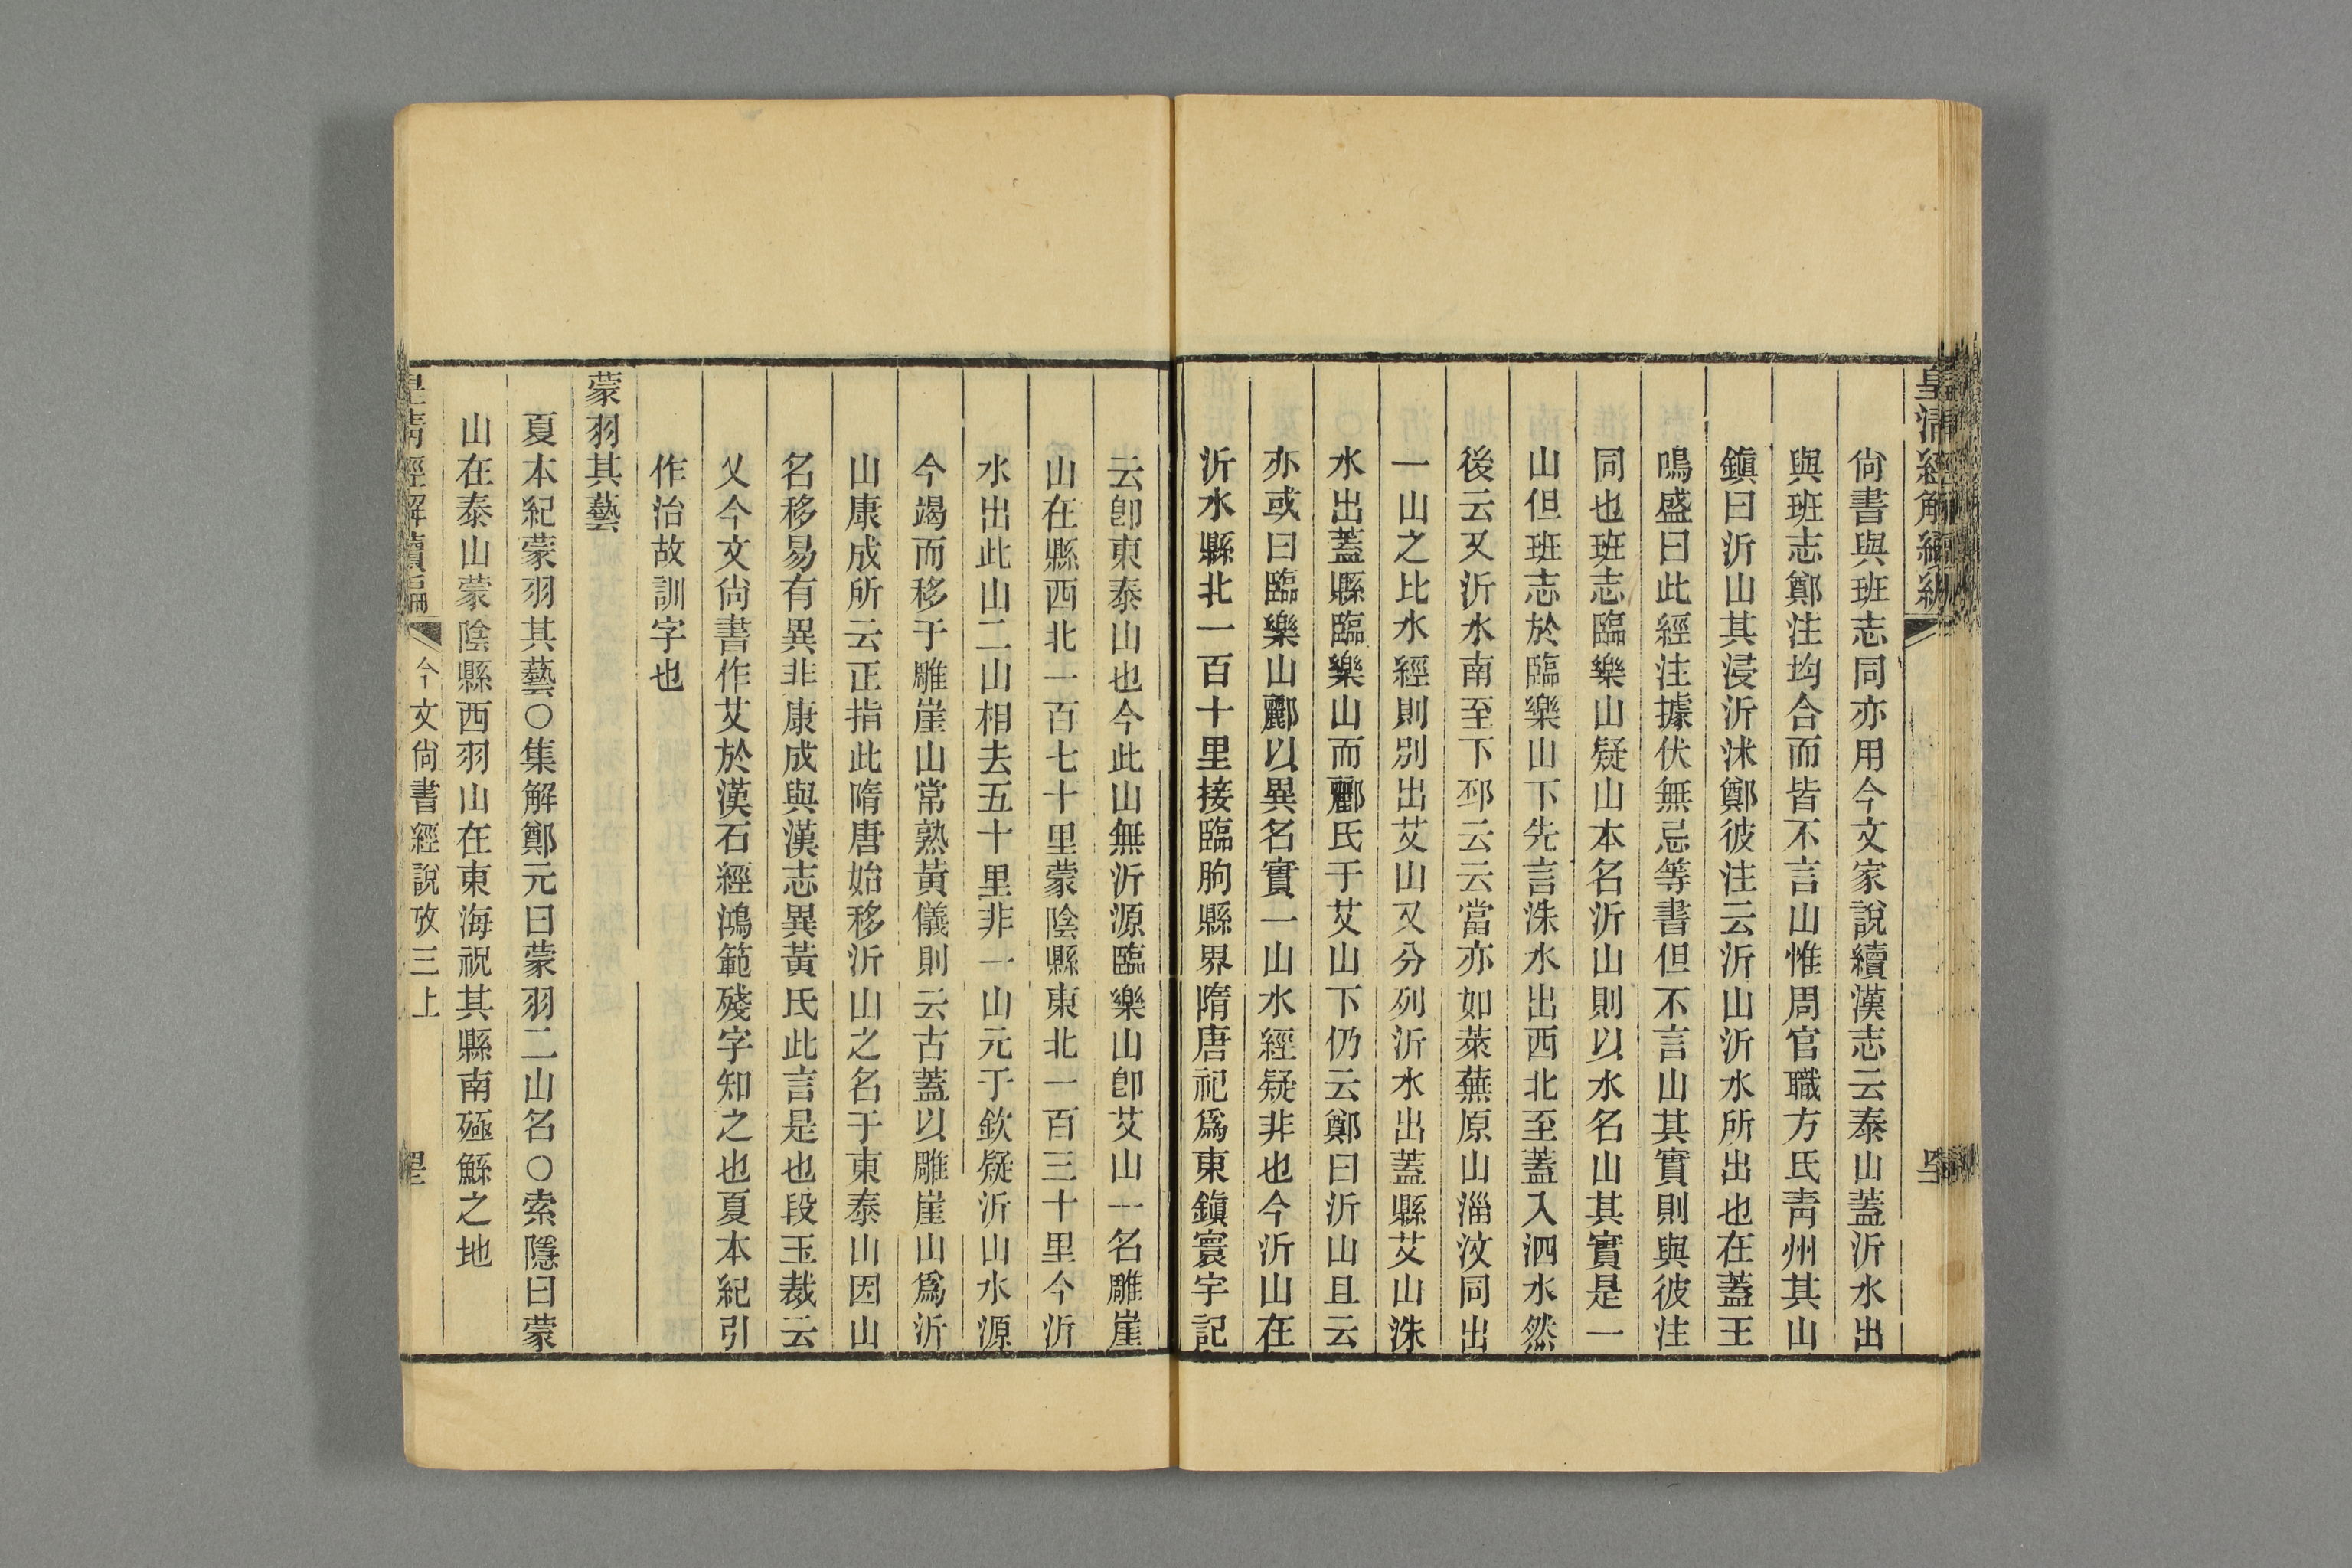 尙書與班志同亦用今文家說續漢志云泰山蓋沂水出
與班志鄭注均合而皆不言山惟周官職方氏靑州其山
鎭曰沂山其浸沂沭鄭彼注云沂山沂水所出也在蓋王
鳴盛曰此經注據伏無忌等書但不言山其實則與彼注
同也班志臨樂山疑山本名沂山則以水名山其實是一
山但班志於臨樂山下先言洙水出西北至蓋入泗水然
後云又沂水南至下邳云云當亦如萊蕪原山淄汶同出
一山之比水經則別出艾山又分列沂水出蓋縣艾山洙
水出蓋縣臨樂山而酈氏于艾山下仍云鄭曰沂山且云
亦或曰臨樂山酈以異名實一山水經疑非也今沂山在
沂水縣北一百十里接臨朐縣界隋唐祀爲東鎭寰宇記
云卽東泰山也今此山無沂源臨樂山卽艾山一名雕崖
山在縣西北一百七十里蒙陰縣東北一百三十里今沂
水出此山二山相去五十里非一山元于欽疑沂山水源
今竭而移于雕崖山常熟黃儀則云古蓋以雕崖山爲沂
山康成所云正指此隋唐始移沂山之名于東泰山因山
名移易有異非康成與漢志異黃氏此言是也段玉裁云
乂今文尙書作艾於漢石經鴻範殘字知之也夏本紀引
作治故訓字也
蒙羽其藝
夏本紀蒙羽其藝○集解鄭元曰蒙羽二山名○索隱曰蒙
山在泰山蒙陰縣西羽山在東海祝其縣南殛鯀之地
皇淸經解續編
今文尙書經說攷三上